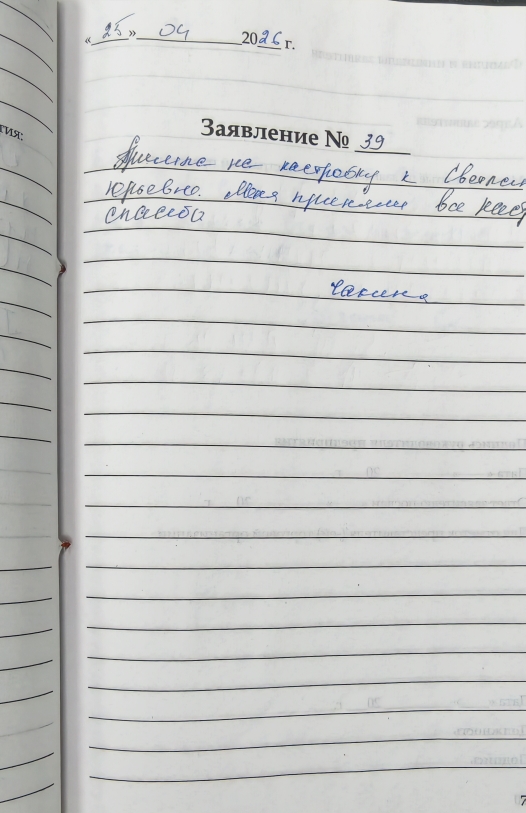 «25» 04 2026 г.
тия:
Заявление № 39
Пришла на настройку к Светлан
Юрьевне. Меня приняли все наст
спасибо
Чакина
7